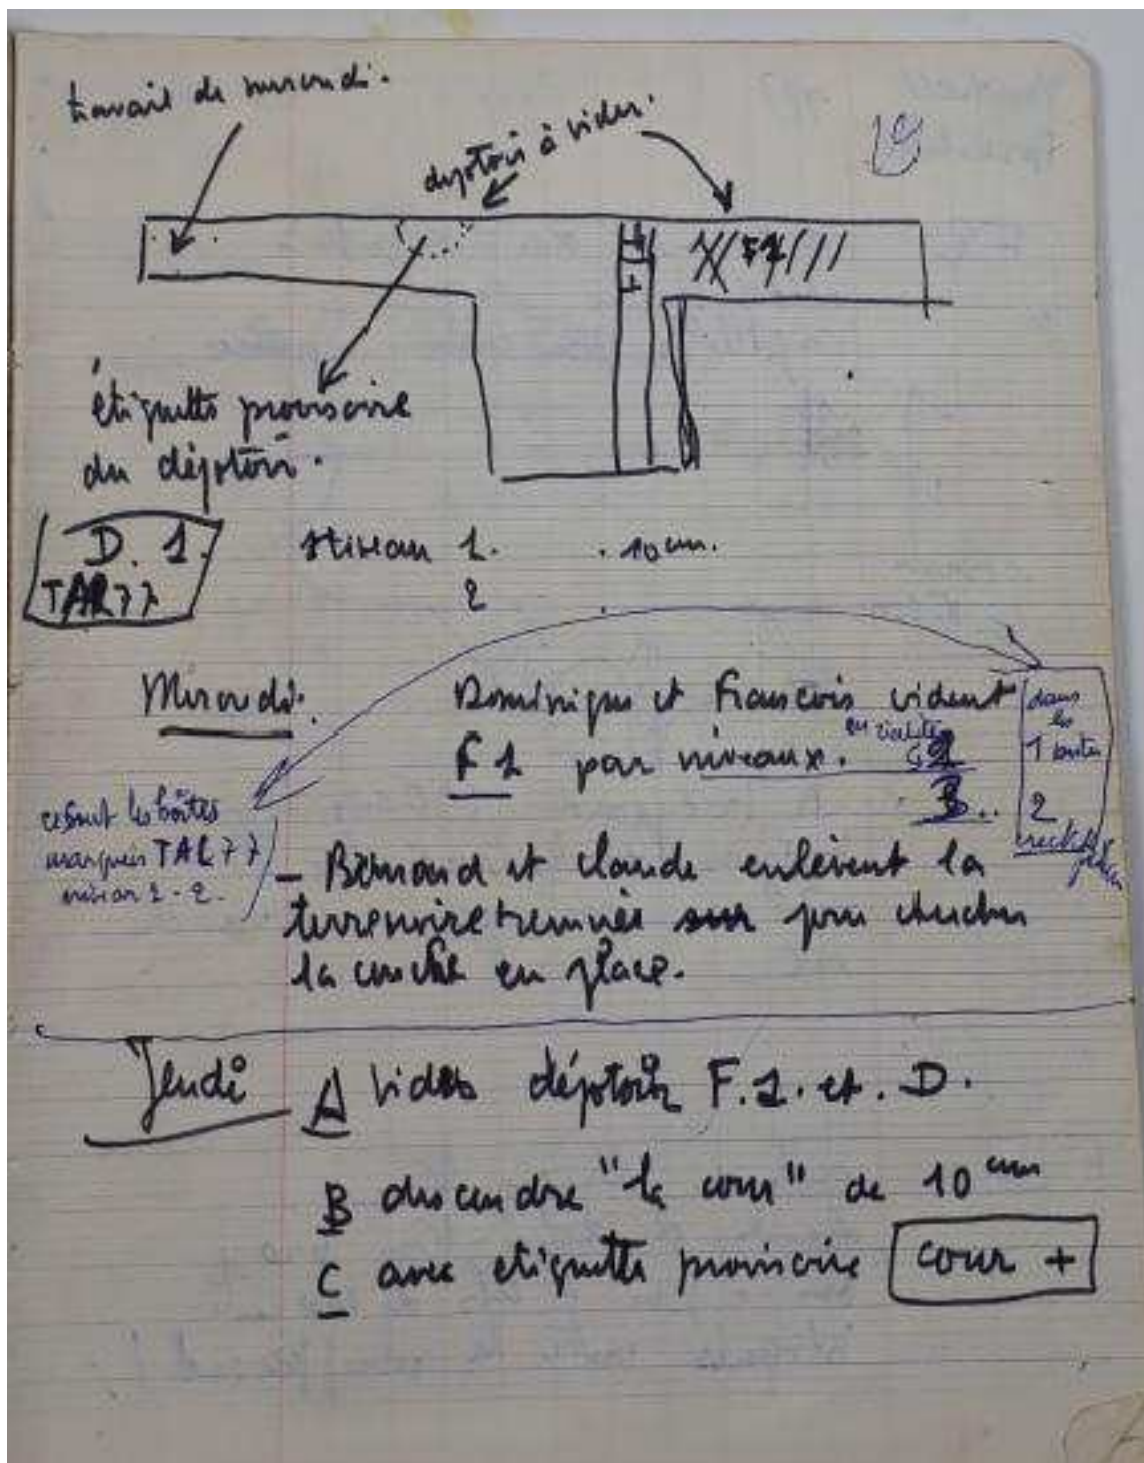 travail de mercredi.
dépotoir à vider.
19
F1
étiquette provisoire
du dépotoir.
D. 1.
TAL77
Niveau 1. . 10 cm.
2
Mercredi. Dominique et François vident
F1 par niveaux. en réalité 1
B..
dans
les
1 boites
2
ce sont les boîtes
marquées TAL77
niveau 1-2.
- Bernard et Claude enlèvent la
terre noire remuée sur pour chercher
la couche en place.
Jeudi A Vider dépotoir F.1. et. D.
B descendre "la cour" de 10 cm
C avec etiquette provisoire cour +